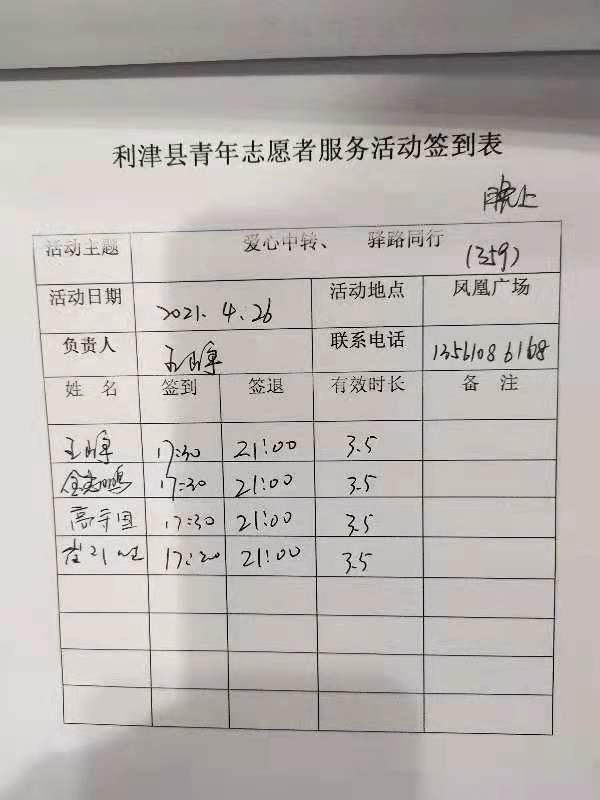 利津县青年志愿者服务活动签到表
晚上
活动主题 爱心中转、 驿路同行 (359)
活动日期 2021.4.26 活动地点 凤凰广场
负责人 王 联系电话 13561086168
姓 名 签到 签退 有效时长 备 注
王 17:30 21:00 3.5
金志鹏 17:30 21:00 3.5
高守国 17:30 21:00 3.5
崔 17:30 21:00 3.5